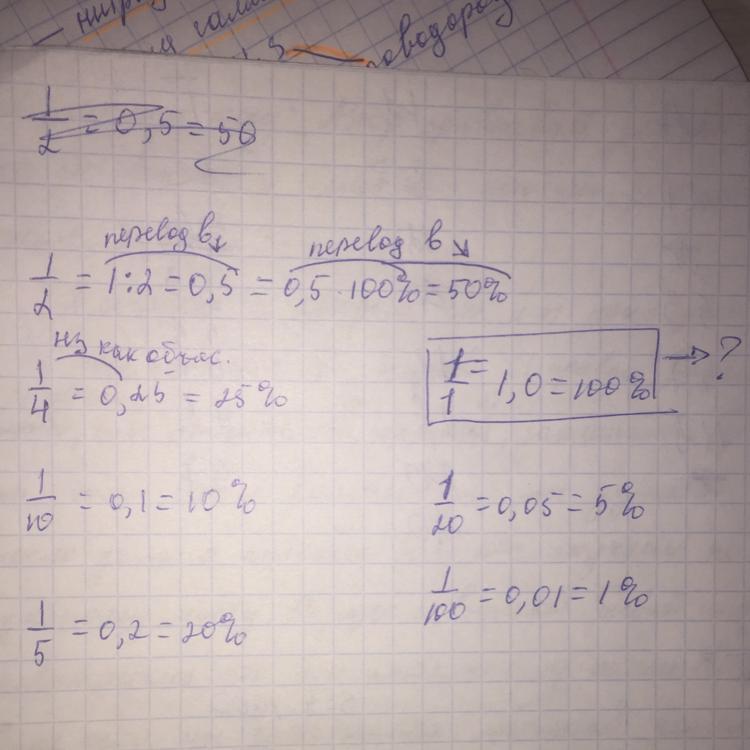 1/2 = 0,5 = 50
перевод в↓ перевод в ↘
1/2 = 1:2 = 0,5 = 0,5 · 100% = 50%
нз как объяс.
1/4 = 0,25 = 25%
1/1 = 1,0 = 100% → ?
1/10 = 0,1 = 10%
1/20 = 0,05 = 5%
1/100 = 0,01 = 1%
1/5 = 0,2 = 20%